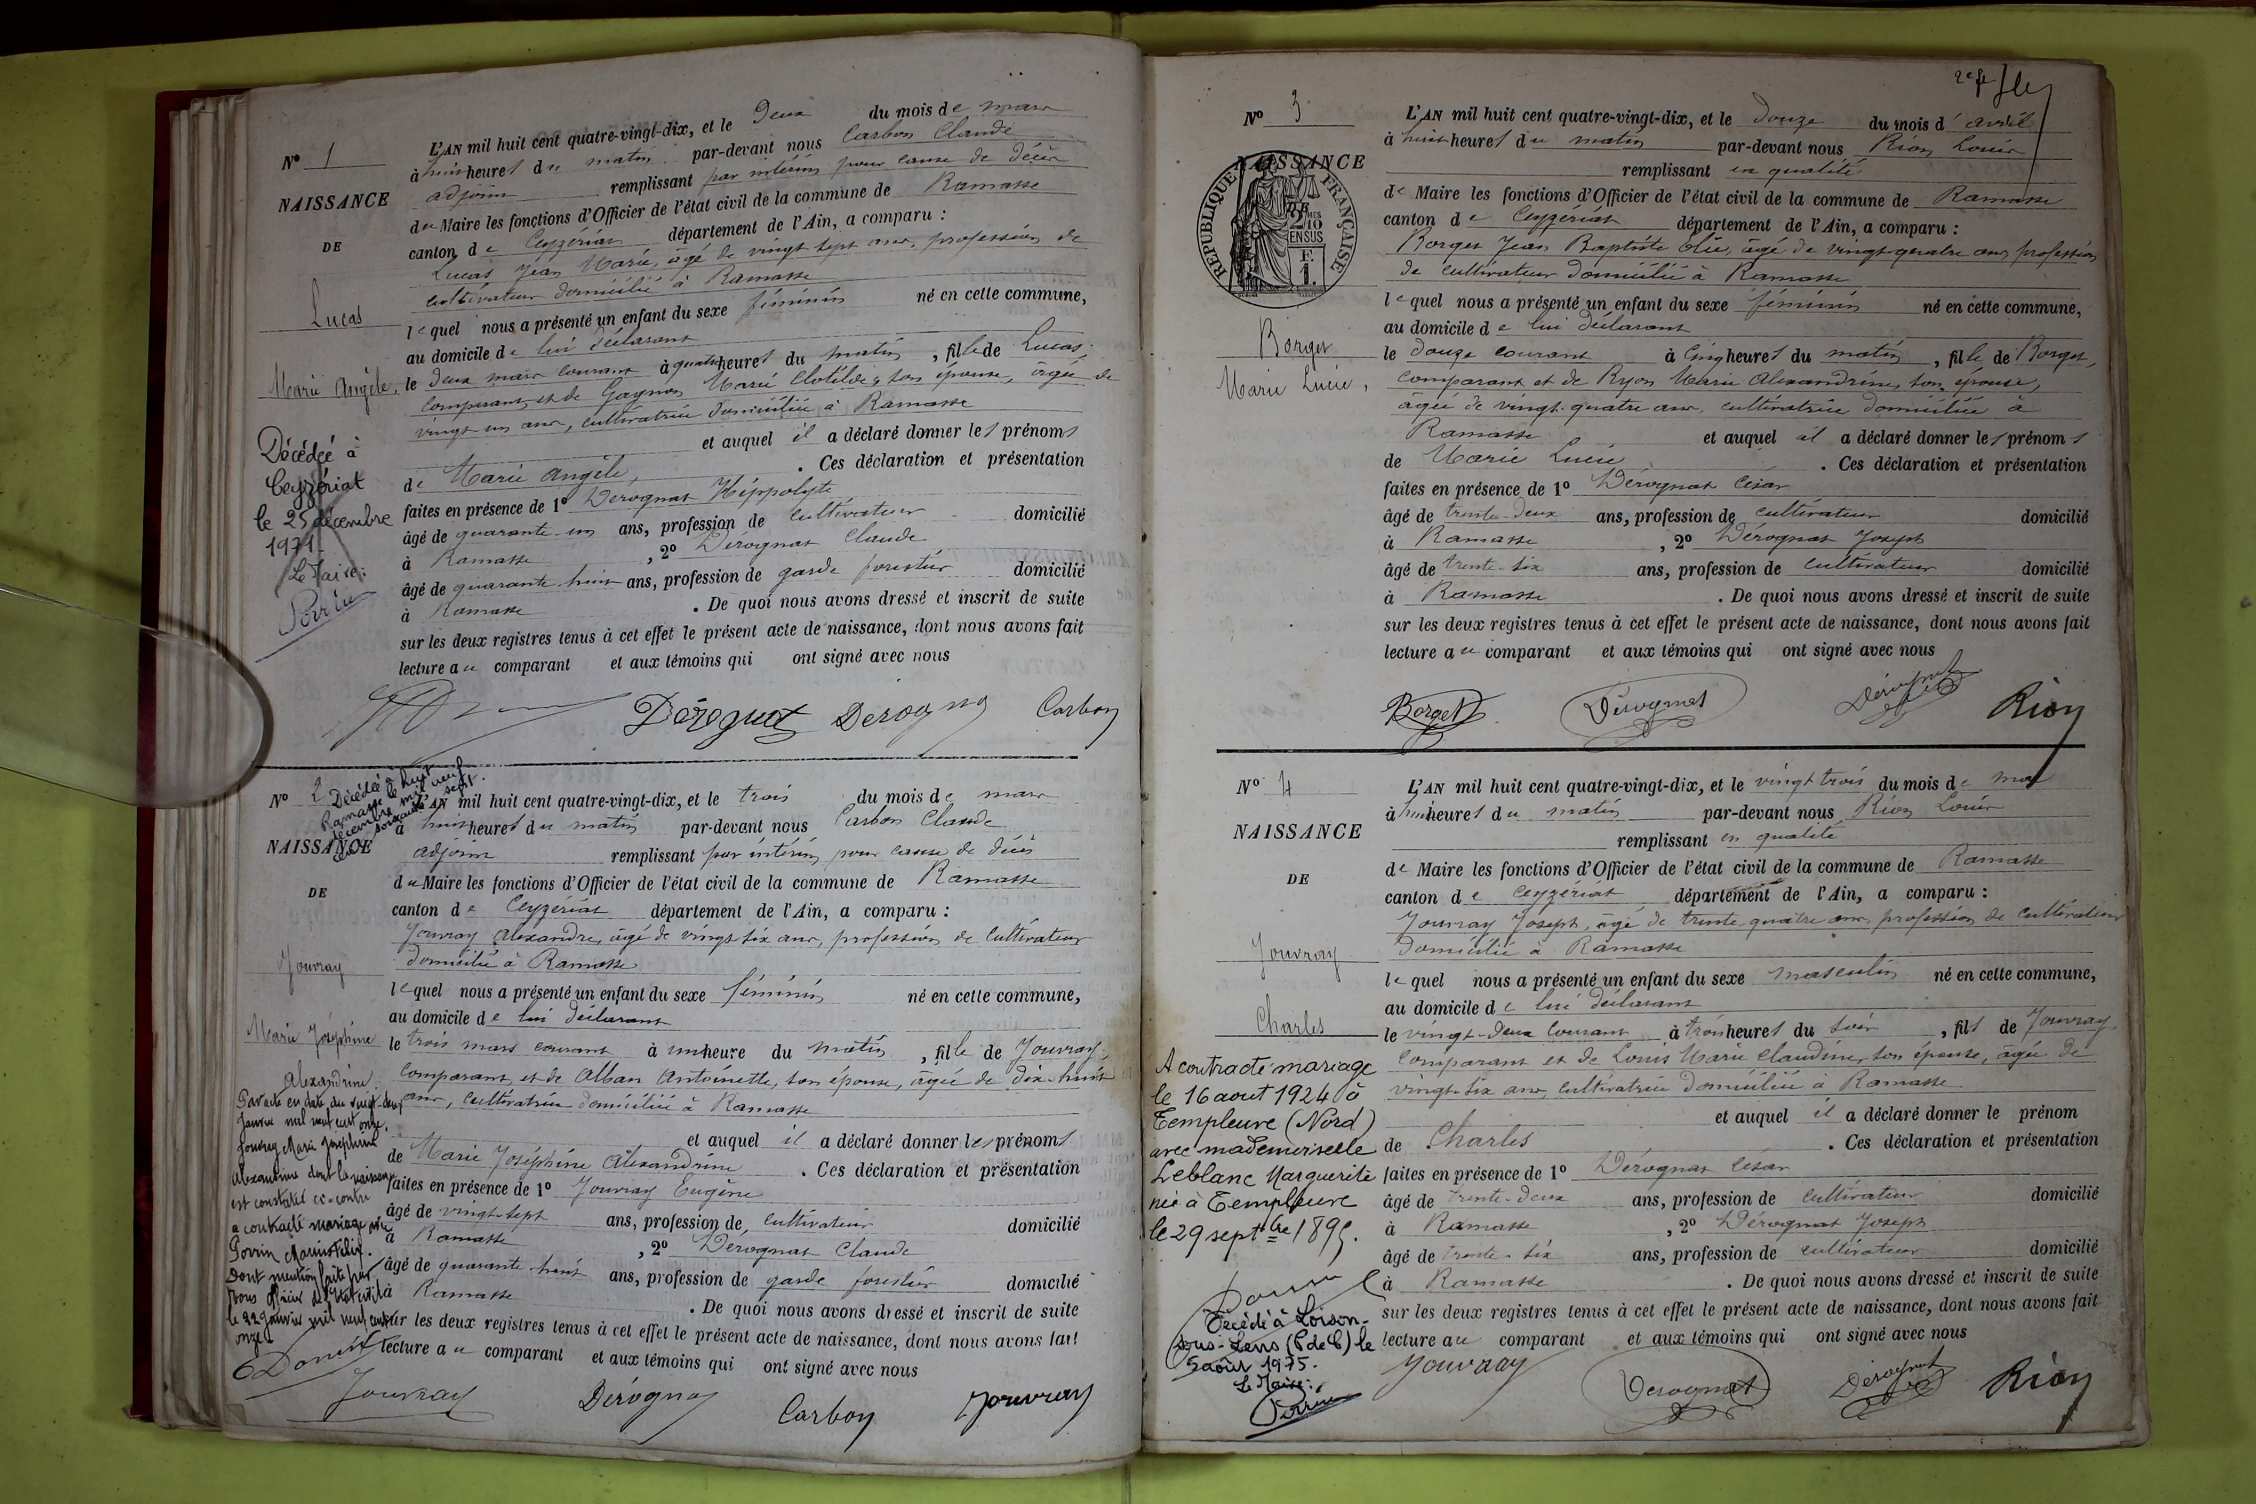 Nº 1
NAISSANCE
DE
Lucas
Marie Angèle,
Décédée à
Ceyzériat
le 25 décembre
1971.
Le Maire:
Perrin
L'AN mil huit cent quatre-vingt-dix, et le Deux du mois de mars
à huit heures du matin par-devant nous Carbon Claude
adjoint remplissant par intérim pour cause de décès
du Maire les fonctions d'Officier de l'état civil de la commune de Ramasse
canton de Ceyzériat département de l'Ain, a comparu :
Lucas Jean Marie, âgé de vingt sept ans, profession de
cultivateur domicilié à Ramasse
lequel nous a présenté un enfant du sexe féminin né en cette commune,
au domicile de lui déclarant
le deux mars courant à quatre heures du matin, fille de Lucas
comparant et de Gagnon Marie Clotilde, son épouse, âgée de
vingt un ans, cultivatrice domiciliée à Ramasse
et auquel il a déclaré donner les prénoms
de Marie Angèle, . Ces déclaration et présentation
faites en présence de 1º Dérognat Hippolyte
âgé de quarante-un ans, profession de cultivateur domicilié
à Ramasse , 2º Dérognat Claude
âgé de quarante-huit ans, profession de garde forestier domicilié
à Ramasse . De quoi nous avons dressé et inscrit de suite
sur les deux registres tenus à cet effet le présent acte de naissance, dont nous avons fait
lecture au comparant et aux témoins qui ont signé avec nous
Dérognat Dérogna Carbon
Nº 2
Décédée à
Ramasse le huit
décembre mil neuf
cent soixante sept.
NAISSANCE
DE
Jouvray
Marie Joséphine
Alexandrine.
Par acte en date du vingt-deux
Janvier mil neuf cent onze,
Jouvray Marie Joséphine
Alexandrine dont la naissance
est constatée ci-contre
a contracté mariage avec
Perrin Marius Félix.
Dont mention faite par
Nous officier de l'état civil
le 22 janvier mil neuf cent
onze.
Donsit
L'AN mil huit cent quatre-vingt-dix, et le trois du mois de mars
à huit heures du matin par-devant nous Carbon Claude
adjoint remplissant par intérim pour cause de décès
du Maire les fonctions d'Officier de l'état civil de la commune de Ramasse
canton de Ceyzériat département de l'Ain, a comparu :
Jouvray Alexandre, âgé de vingt six ans, profession de cultivateur
domicilié à Ramasse
lequel nous a présenté un enfant du sexe féminin né en cette commune,
au domicile de lui déclarant
le trois mars courant à un heure du matin, fille de Jouvray,
comparant et de Alban Antoinette, son épouse, âgée de dix-huit
ans, cultivatrice domiciliée à Ramasse
et auquel il a déclaré donner les prénoms
de Marie Joséphine Alexandrine . Ces déclaration et présentation
faites en présence de 1º Jouvray Eugène
âgé de vingt-sept ans, profession de cultivateur domicilié
à Ramasse , 2º Dérognat Claude
âgé de quarante-huit ans, profession de garde forestier domicilié
à Ramasse . De quoi nous avons dressé et inscrit de suite
sur les deux registres tenus à cet effet le présent acte de naissance, dont nous avons fait
lecture au comparant et aux témoins qui ont signé avec nous
Jouvray Dérogna Carbon Jouvray
2e
Nº 3
NAISSANCE
DE
RÉPUBLIQUE FRANÇAISE
2/10 EN SUS
F. 1.
Borget
Marie Lucie,
L'AN mil huit cent quatre-vingt-dix, et le douze du mois d'avril
à huit heures du matin par-devant nous Rion Louis
remplissant en qualité
de Maire les fonctions d'Officier de l'état civil de la commune de Ramasse
canton de Ceyzériat département de l'Ain, a comparu :
Borget Jean Baptiste Elie, âgé de vingt-quatre ans, profession
de cultivateur domicilié à Ramasse
lequel nous a présenté un enfant du sexe féminin né en cette commune,
au domicile de lui déclarant
le douze courant à cinq heures du matin, fille de Borget,
comparant et de Ryon Marie Alexandrine, son épouse,
âgée de vingt-quatre ans, cultivatrice domiciliée à
Ramasse et auquel il a déclaré donner les prénoms
de Marie Lucie . Ces déclaration et présentation
faites en présence de 1º Dérognat César
âgé de trente-deux ans, profession de cultivateur domicilié
à Ramasse , 2º Dérognat Joseph
âgé de trente-six ans, profession de cultivateur domicilié
à Ramasse . De quoi nous avons dressé et inscrit de suite
sur les deux registres tenus à cet effet le présent acte de naissance, dont nous avons fait
lecture au comparant et aux témoins qui ont signé avec nous
Borget Dérognat Dérognat Rion
Nº 4
NAISSANCE
DE
Jouvray
Charles
A contracté mariage
le 16 aout 1924 à
Templeuve (Nord)
avec mademoiselle
Leblanc Marguerite
née à Templeuve
le 29 septbre 1895.
Décédé à Loison-
sous-Lens (P de C) le
5 août 1975.
Le Maire:
Perrin
L'AN mil huit cent quatre-vingt-dix, et le vingt trois du mois de mai
à huit heures du matin par-devant nous Rion Louis
remplissant en qualité
de Maire les fonctions d'Officier de l'état civil de la commune de Ramasse
canton de Ceyzériat département de l'Ain, a comparu :
Jouvray Joseph, âgé de trente-quatre ans, profession de cultivateur
domicilié à Ramasse
lequel nous a présenté un enfant du sexe masculin né en cette commune,
au domicile de lui déclarant
le vingt-deux courant à trois heures du soir, fils de Jouvray,
comparant et de Louis Marie Claudine, son épouse, âgée de
vingt-six ans, cultivatrice domiciliée à Ramasse
et auquel il a déclaré donner le prénom
de Charles . Ces déclaration et présentation
faites en présence de 1º Dérognat César
âgé de trente-deux ans, profession de cultivateur domicilié
à Ramasse , 2º Dérognat Joseph
âgé de trente-six ans, profession de cultivateur domicilié
à Ramasse . De quoi nous avons dressé et inscrit de suite
sur les deux registres tenus à cet effet le présent acte de naissance, dont nous avons fait
lecture au comparant et aux témoins qui ont signé avec nous
Jouvray Dérognat Dérognat Rion